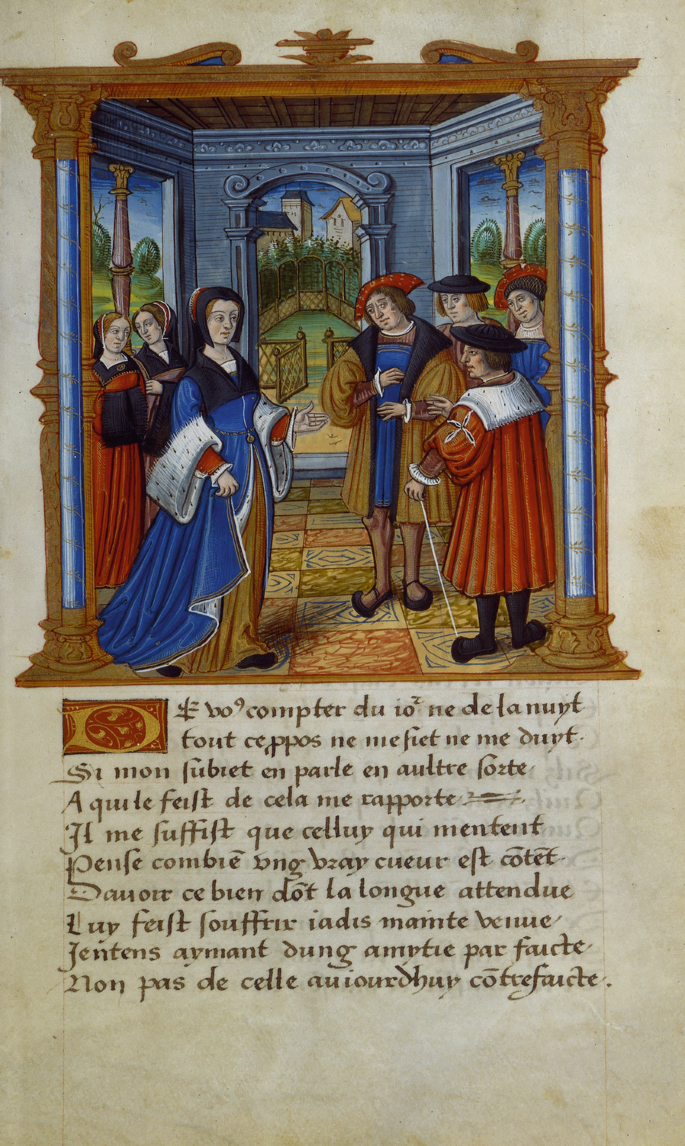 DE vo⁹ compter du ioʳ ne de la nuyt
tout ce ꝓpos ne me siet ne me duyt.
Si mon subiet en parle en aultre sorte
A qui le feist de cela me rapporte
Il me suffist que celluy qui mentent
Pense combiē vng vray cueur est cōtēt
Davoir ce bien dōt la longue attendue
Luy feist souffrir iadis mainte venue
Jentens aymant dung amytie par faicte
Non pas de celle auiourdhuy cōtrefaicte.